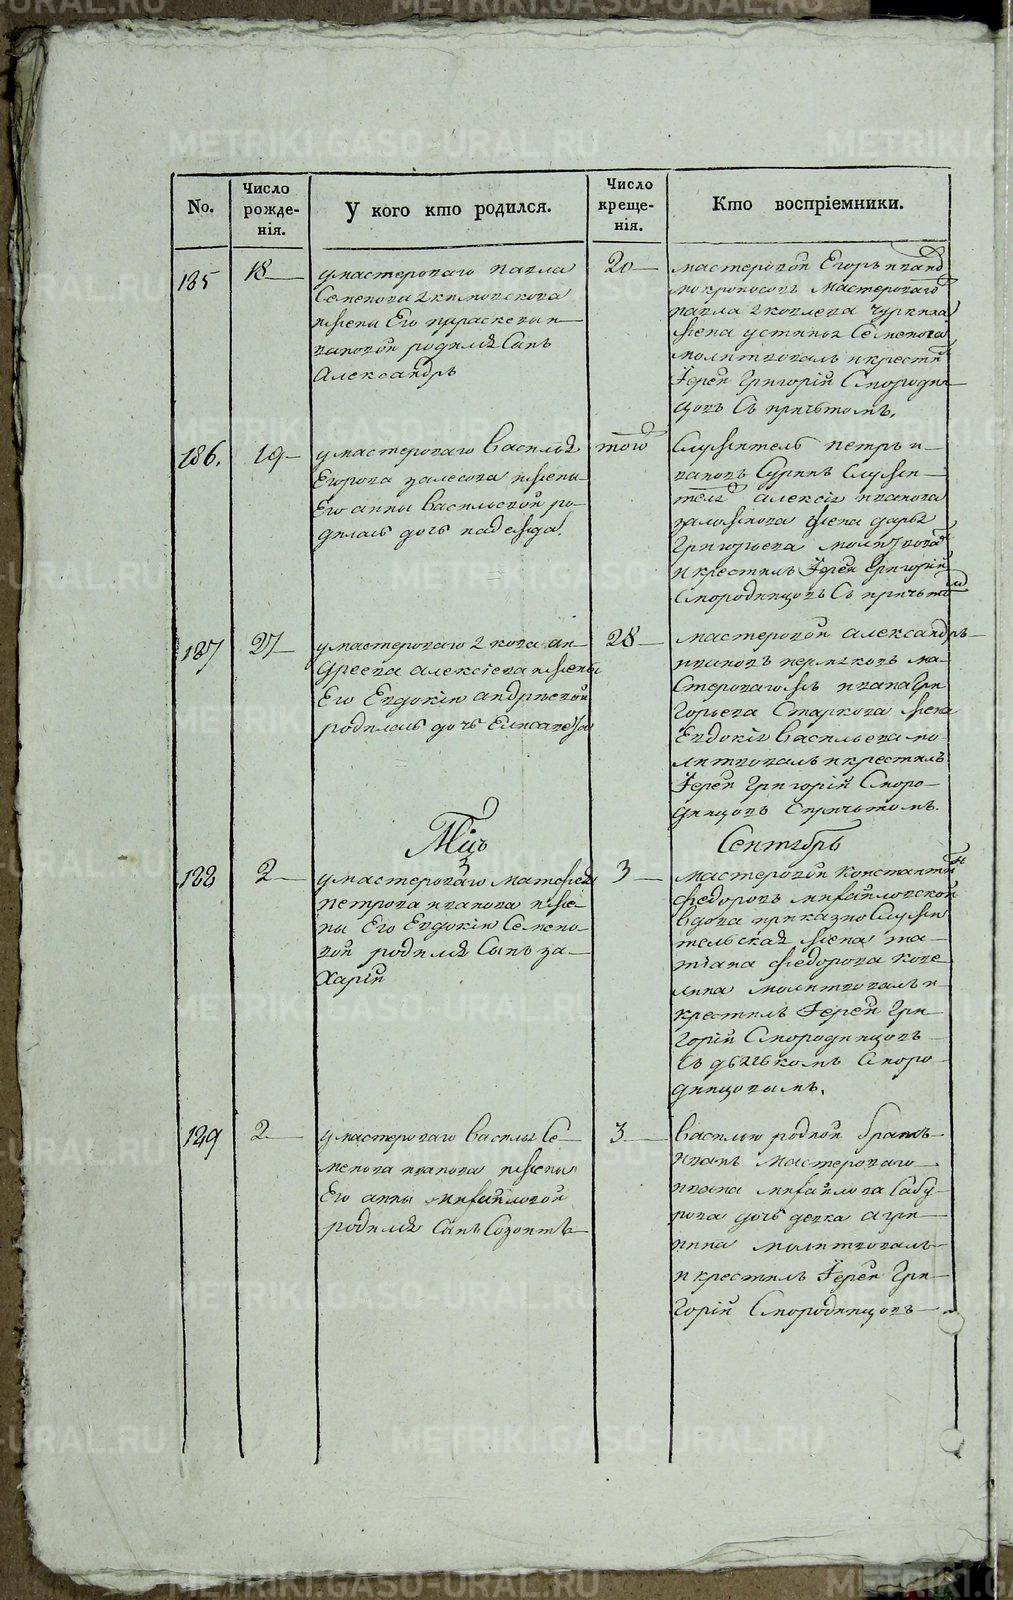 No.
Число рожде-нія.
У кого кто родился.
Число креще-нія.
Кто воспріемники.
185
18
у мастероваго павла
Семенова
жены Его параскевы и
вановой родился Сынъ
Александръ
20
мастеровой Егоръ иванов
мокроносовъ мастероваго
павла
жена устинья Семенова
молитвовалъ и крести
Іерей Григорій Смородин
цовъ Съ причьтомъ.
186.
19
у мастероваго Василья
Егорова залесова жены
Его анны Васильевой ро-
дилась дочь надежда.
того
Служитель петръ и
вановъ Служи-
теля алексія иванова
жена дарья
Григорьева молитвова
и крестилъ Іерей Григорій
Смородинцовъ Съ причьтом
187
27
у мастероваго якова ан-
дреева алексіева жены
Его Евдокіи андріевой
родилась дочь Елисавета
28
мастеровой александръ
ивановъ пермяковъ ма-
Стероваго жъ ивана Гри
Горьева Старкова жена
Евдокія Васильева мо-
литвовалъ и крестилъ
Іерей Григорій Сморо-
динцовъ с причьтомъ.
Мцъ
Сентябрь
188
2
у мастероваго матфея
петрова иванова же-
ны Его Евдокіи Семено-
вой родился Сынъ за-
Харій
3
мастеровой константин
федоровъ михайловской
вдова приказно Служи
тельская жена та-
тіана федорова коте
лина молитвовалъ и
крестилъ Іерей Гри
Горій Смородинцовъ
Съ дьячькомъ Сморо-
динцовымъ.
189
2
у мастероваго Василья Се-
менова иванова жены
Его анны михайловой
родился Сынъ Созонтъ
3
Василью родной братъ
иванъ мастероваго
ивана михайлова Сабу-
рова дочь девка агри
пина молитвовалъ
и крестилъ Іерей Гри-
Горій Смородинцовъ
METRIKI.GASO-URAL.RU